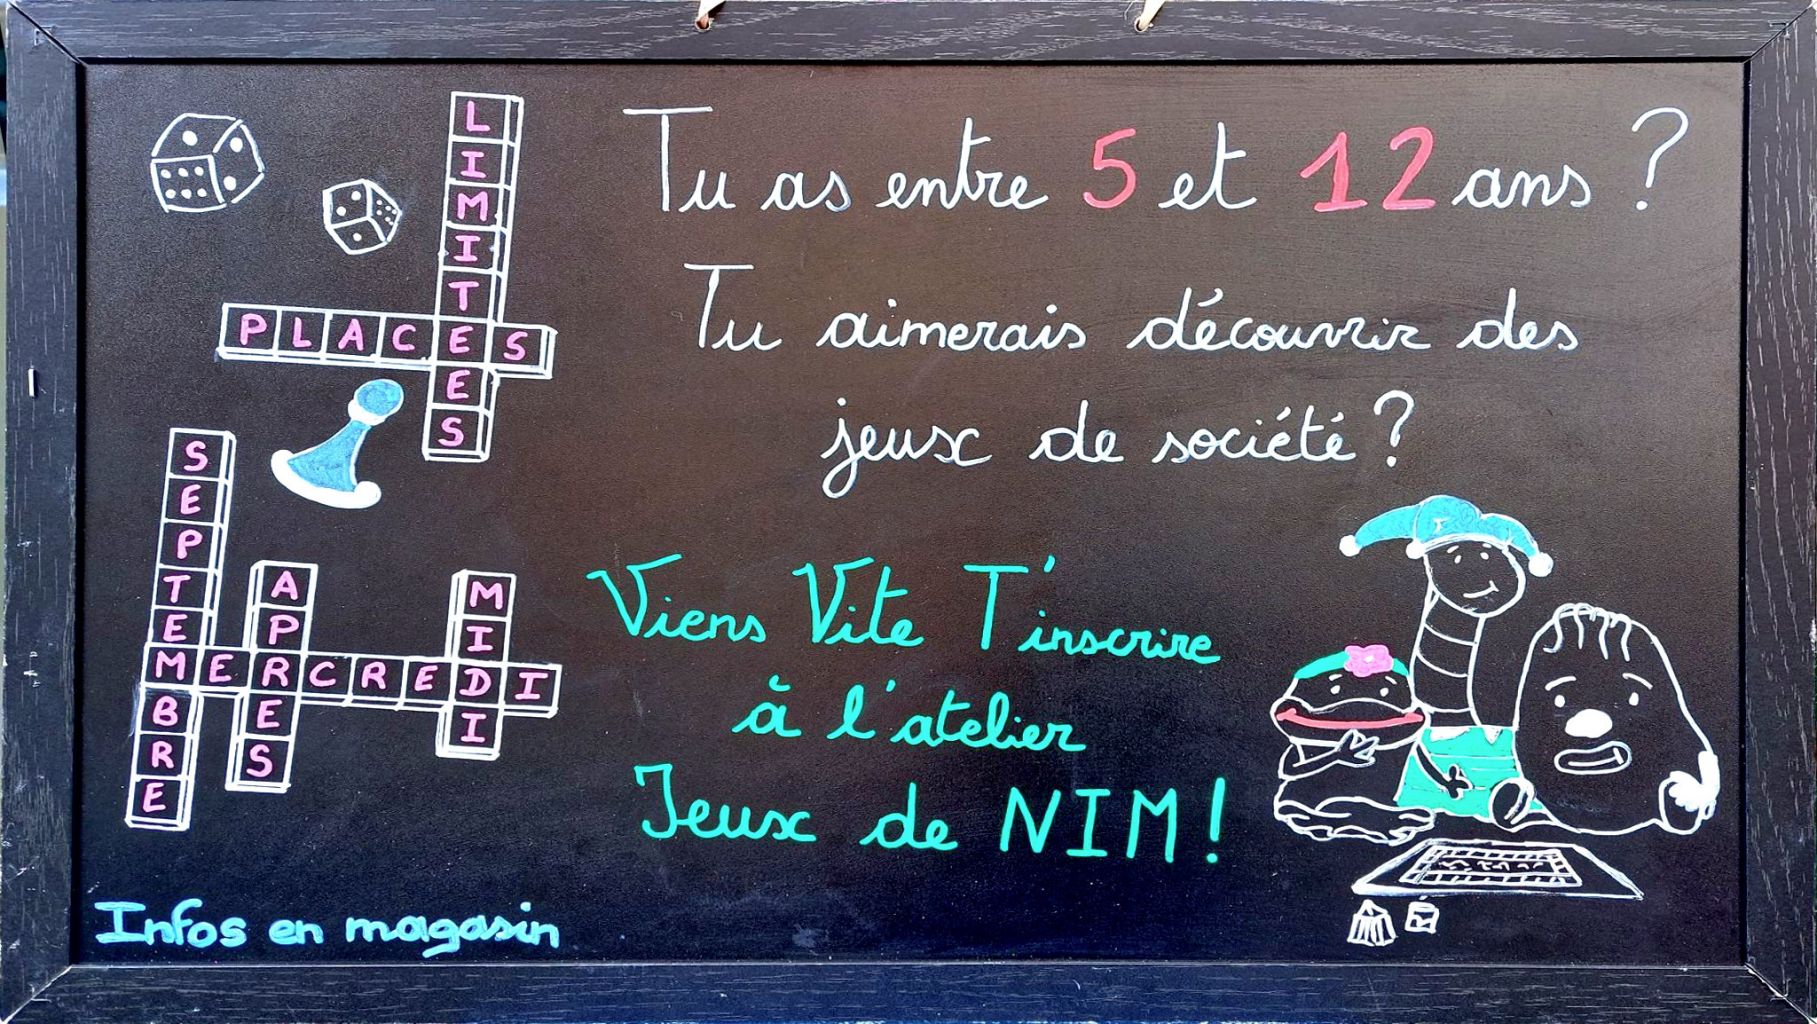 LIMITEES
PLACES
SEPTEMBRE
APRES
MIDI
MERCREDI
Tu as entre 5 et 12 ans ?
Tu aimerais découvrir des
jeux de société ?
Viens Vite T'inscrire
à l'atelier
Jeux de NIM !
Infos en magasin